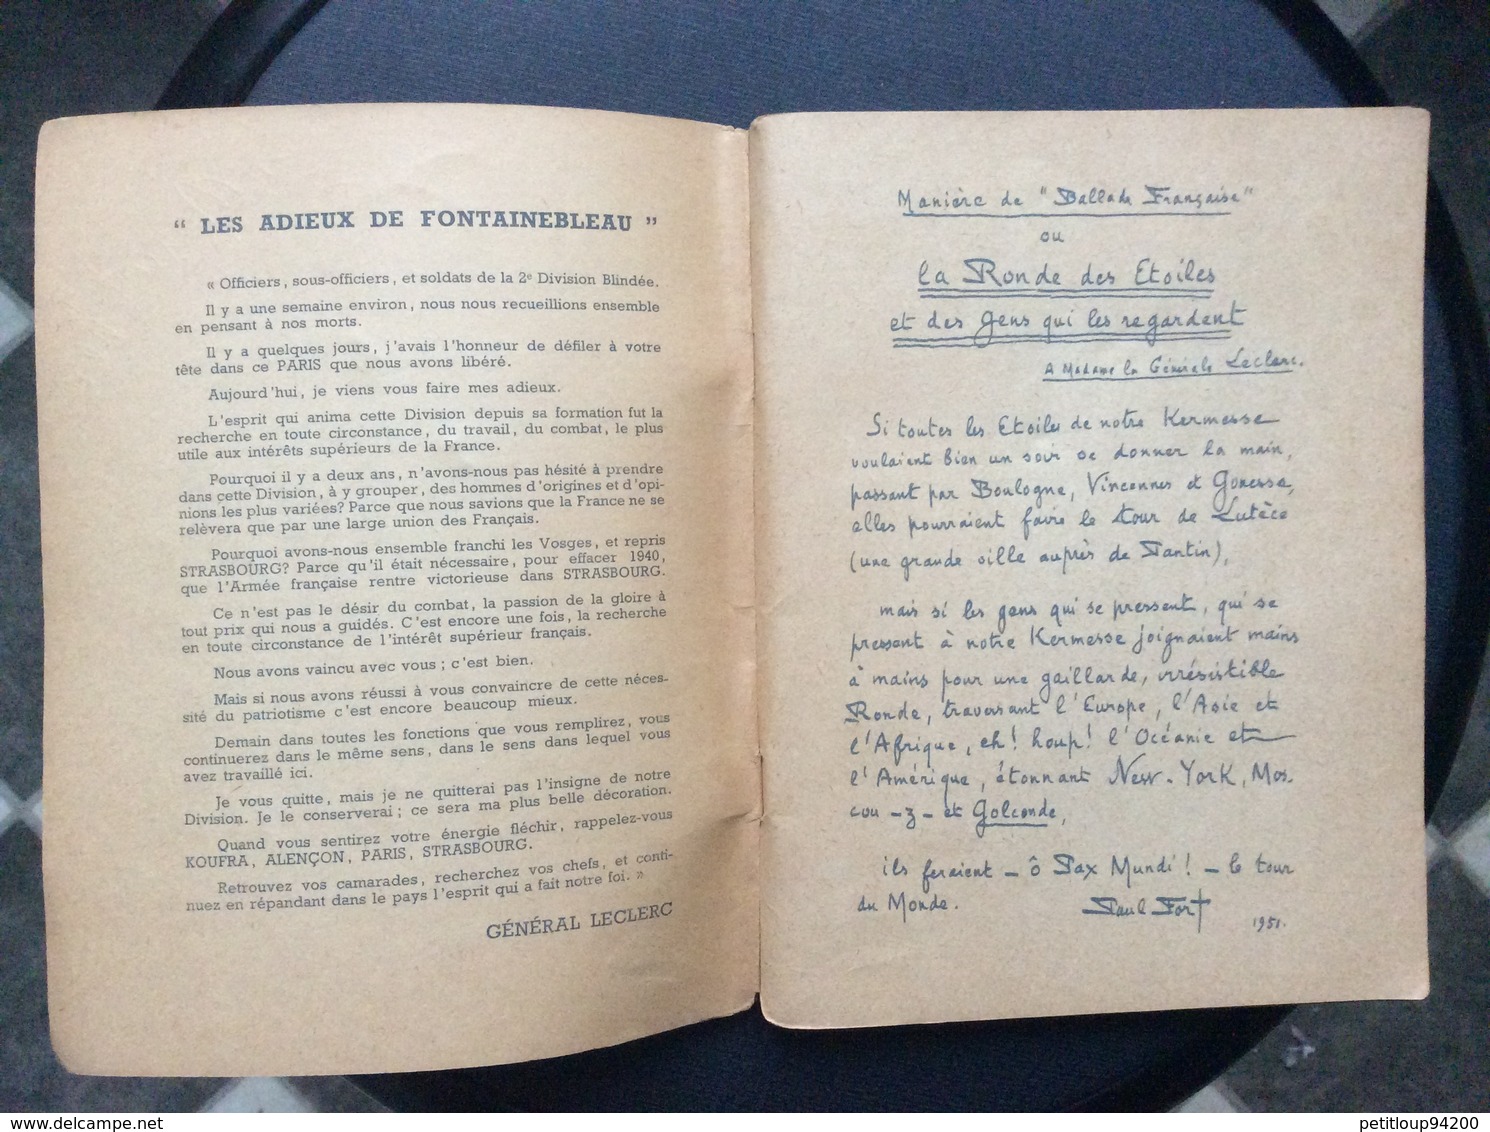 “ LES ADIEUX DE FONTAINEBLEAU ”
« Officiers, sous-officiers, et soldats de la 2e Division Blindée.
Il y a une semaine environ, nous nous recueillions ensemble
en pensant à nos morts.
Il y a quelques jours, j'avais l'honneur de défiler à votre
tête dans ce PARIS que nous avons libéré.
Aujourd'hui, je viens vous faire mes adieux.
L'esprit qui anima cette Division depuis sa formation fut la
recherche en toute circonstance, du travail, du combat, le plus
utile aux intérêts supérieurs de la France.
Pourquoi il y a deux ans, n'avons-nous pas hésité à prendre
dans cette Division, à y grouper, des hommes d'origines et d'opi-
nions les plus variées? Parce que nous savions que la France ne se
relèvera que par une large union des Français.
Pourquoi avons-nous ensemble franchi les Vosges, et repris
STRASBOURG? Parce qu'il était nécessaire, pour effacer 1940,
que l'Armée française rentre victorieuse dans STRASBOURG.
Ce n'est pas le désir du combat, la passion de la gloire à
tout prix qui nous a guidés. C'est encore une fois, la recherche
en toute circonstance de l'intérêt supérieur français.
Nous avons vaincu avec vous ; c'est bien.
Mais si nous avons réussi à vous convaincre de cette néces-
sité du patriotisme c'est encore beaucoup mieux.
Demain dans toutes les fonctions que vous remplirez, vous
continuerez dans le même sens, dans le sens dans lequel vous
avez travaillé ici.
Je vous quitte, mais je ne quitterai pas l'insigne de notre
Division. Je le conserverai ; ce sera ma plus belle décoration.
Quand vous sentirez votre énergie fléchir, rappelez-vous
KOUFRA, ALENÇON, PARIS, STRASBOURG.
Retrouvez vos camarades, recherchez vos chefs, et conti-
nuez en répandant dans le pays l'esprit qui a fait notre foi. »
GÉNÉRAL LECLERC
Manière de "Ballade Française"
ou
la Ronde des Etoiles
et des gens qui les regardent
A Madame la Générale Leclerc.
Si toutes les Etoiles de notre Kermesse
voulaient bien un soir se donner la main,
passant par Boulogne, Vincennes et Gonesse,
elles pourraient faire le tour de Lutèce
(une grande ville auprès de Pantin),
mais si les gens qui se pressent, qui se
pressent à notre Kermesse joignaient mains
à mains pour une gaillarde, irrésistible
Ronde, traversant l'Europe, l'Asie et
l'Afrique, eh! houp! l'Océanie et
l'Amérique, étonnant New-York, Mos-
cou -z- et Golconde,
ils feraient - ô Pax Mundi! - le tour
du Monde.
Paul Fort
1951.
petitloup94200